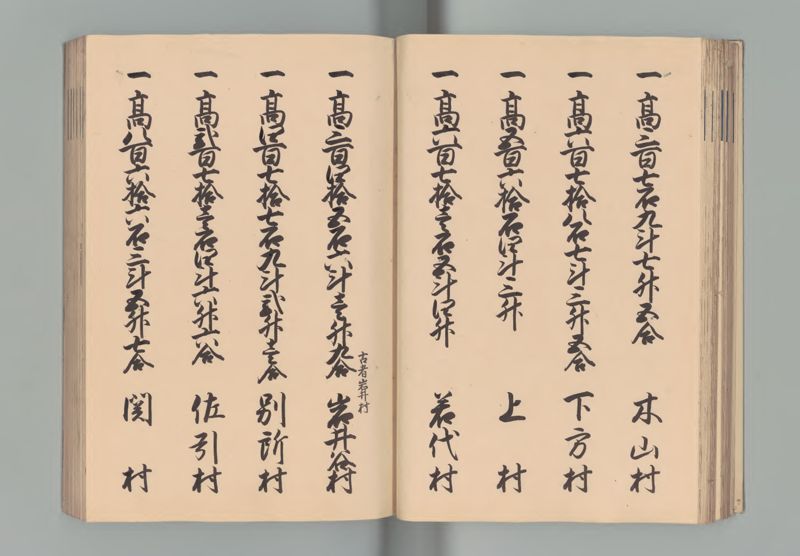 一 高三百七石九斗七升五合 木山村
一 高六百七拾八石七斗三升五合 下方村
一 高五百六拾石四斗三升 上村
一 高六百七拾壱石五斗四升 若代村
一 高三百四拾五石六斗壱升九合 岩井谷村
古者岩井村
一 高四百七拾七石九斗弐升壱合 別所村
一 高弐百七拾壱石四斗六升六合 佐引村
一 高八百六拾六石三斗五升七合 関村